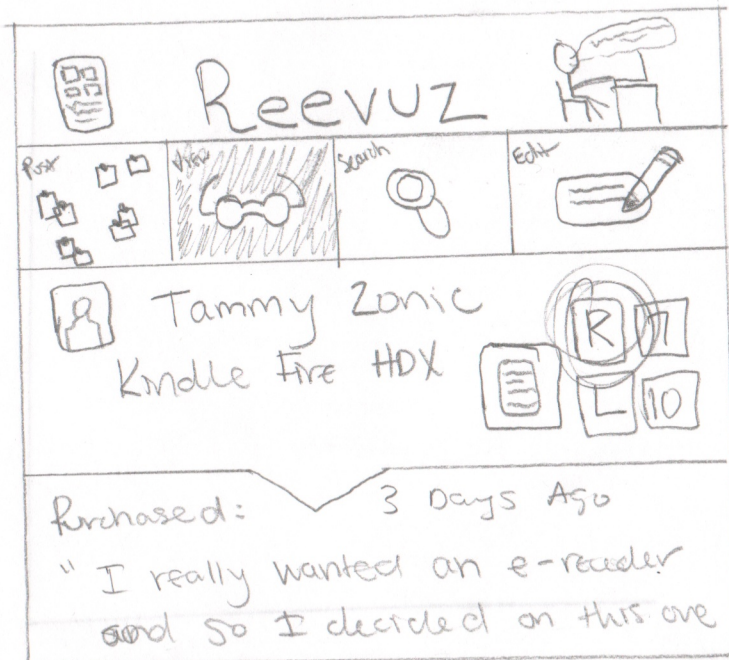 Reevuz
Post View Search Edit
Tammy Zonic R 7
Kindle Fire HDX L 10
Purchased: 3 Days Ago
" I really wanted an e-reader
and so I decided on this one